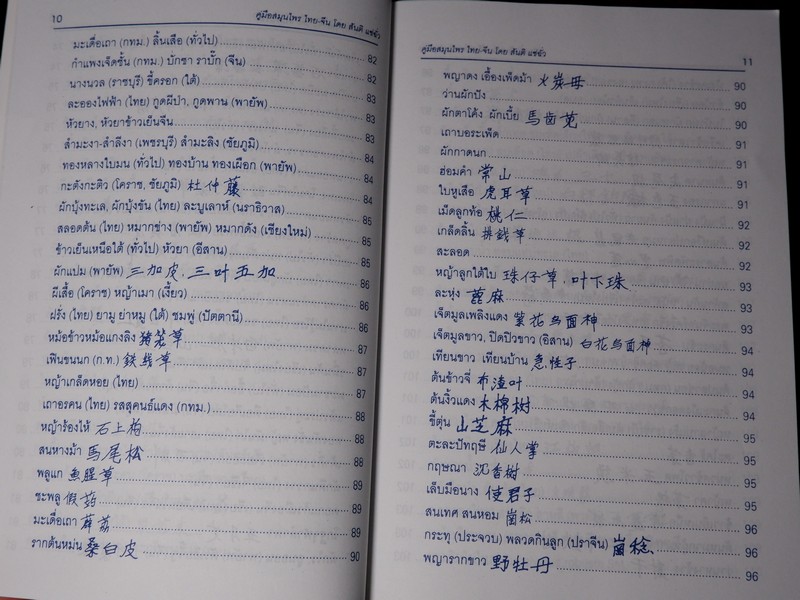 10 คู่มือสมุนไพร ไทย-จีน โดย สันติ แซ่ฉั่ว
มะเดื่อเถา (กทม.) ลิ้นเสือ (ทั่วไป) 82
กำแพงเจ็ดชั้น (กทม.) บักซา ราบั๊ก (จีน) 82
นางนวล (ราชบุรี) ขี้ครอก (ใต้) 83
ละอองไฟฟ้า (ไทย) กูดผีป่า, กูดพาน (พายัพ) 83
หัวยาง, หัวยาข้าวเย็นจีน 83
สำมะงา-สำลีงา (เพชรบุรี) สำมะลิง (ชัยภูมิ) 84
ทองหลางใบมน (ทั่วไป) ทองบ้าน ทองเผือก (พายัพ) 84
กะตังกะติว (โคราช, ชัยภูมิ) 杜仲藤 84
ผักบุ้งทะเล, ผักบุ้งขัน (ไทย) ละบูเลาห์ (นราธิวาส) 85
สลอดต้น (ไทย) หมากช่าง (พายัพ) หมากดัง (เชียงใหม่) 85
ข้าวเย็นเหนือใต้ (ทั่วไป) หัวยา (อีสาน) 85
ผักแปม (พายัพ) 三加皮, 三叶五加 86
ผีเสื้อ (โคราช) หญ้าเมา (เงี้ยว) 86
ฝรั่ง (ไทย) ยามู ย่าหมู (ใต้) ชมพู่ (ปัตตานี) 86
หม้อข้าวหม้อแกงลิง 猪笼草 87
เฟินขนนก (ก.ท.) 鉄线草 87
หญ้าเกล็ดหอย (ไทย) 87
เถาอรคน (ไทย) รสสุคนธ์แดง (กทม.) 88
หญ้าร้องไห้ 石上柏 88
สนหางม้า 馬尾松 88
พลูแก 魚腥草 89
ชะพลู 假蒟 89
มะเดื่อเถา 薜荔 89
รากต้นหม่น 桑白皮 90
คู่มือสมุนไพร ไทย-จีน โดย สันติ แซ่ฉั่ว 11
พญาดง เอื้องเพ็ดม้า 火炭母 90
ว่านผักปัง 90
ผักตาโค้ง ผักเบี้ย 馬齒莧 90
เถาบอระเพ็ด 91
ผักกาดนก 91
ฮ่อมคำ 常山 91
ใบหูเสือ 虎耳草 91
เม็ดลูกท้อ 桃仁 92
เกล็ดลิ้น 排銭草 92
สะลอด 92
หญ้าลูกใต้ใบ 珠仔草, 叶下珠 93
ละหุ่ง 蓖麻 93
เจ็ตมูลเพลิงแดง 紫花乌面神 93
เจ็ตมูลขาว, ปิดปิวขาว (อีสาน) 白花乌面神 94
เทียนขาว เทียนบ้าน 急性子 94
ต้นข้าวจี่ 布渣叶 94
ต้นงิ้วแดง 木棉樹 94
ขี้ตุ่น 山芝麻 95
ตะละปัทฤษี 仙人掌 95
กฤษณา 沉香樹 95
เล็บมือนาง 使君子 95
สนเทศ สนหอม 崗松 96
กระทุ (ประจวบ) พลวดกินลูก (ปราจีน) 崗稔 96
พญารากขาว 野牡丹 96